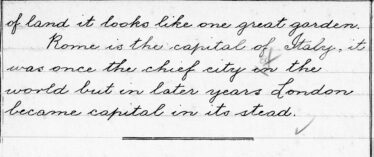 of land it looks like one great garden.
Rome is the capital of Italy, it
was once the chief city in the
world but in later years London
became capital in its stead.